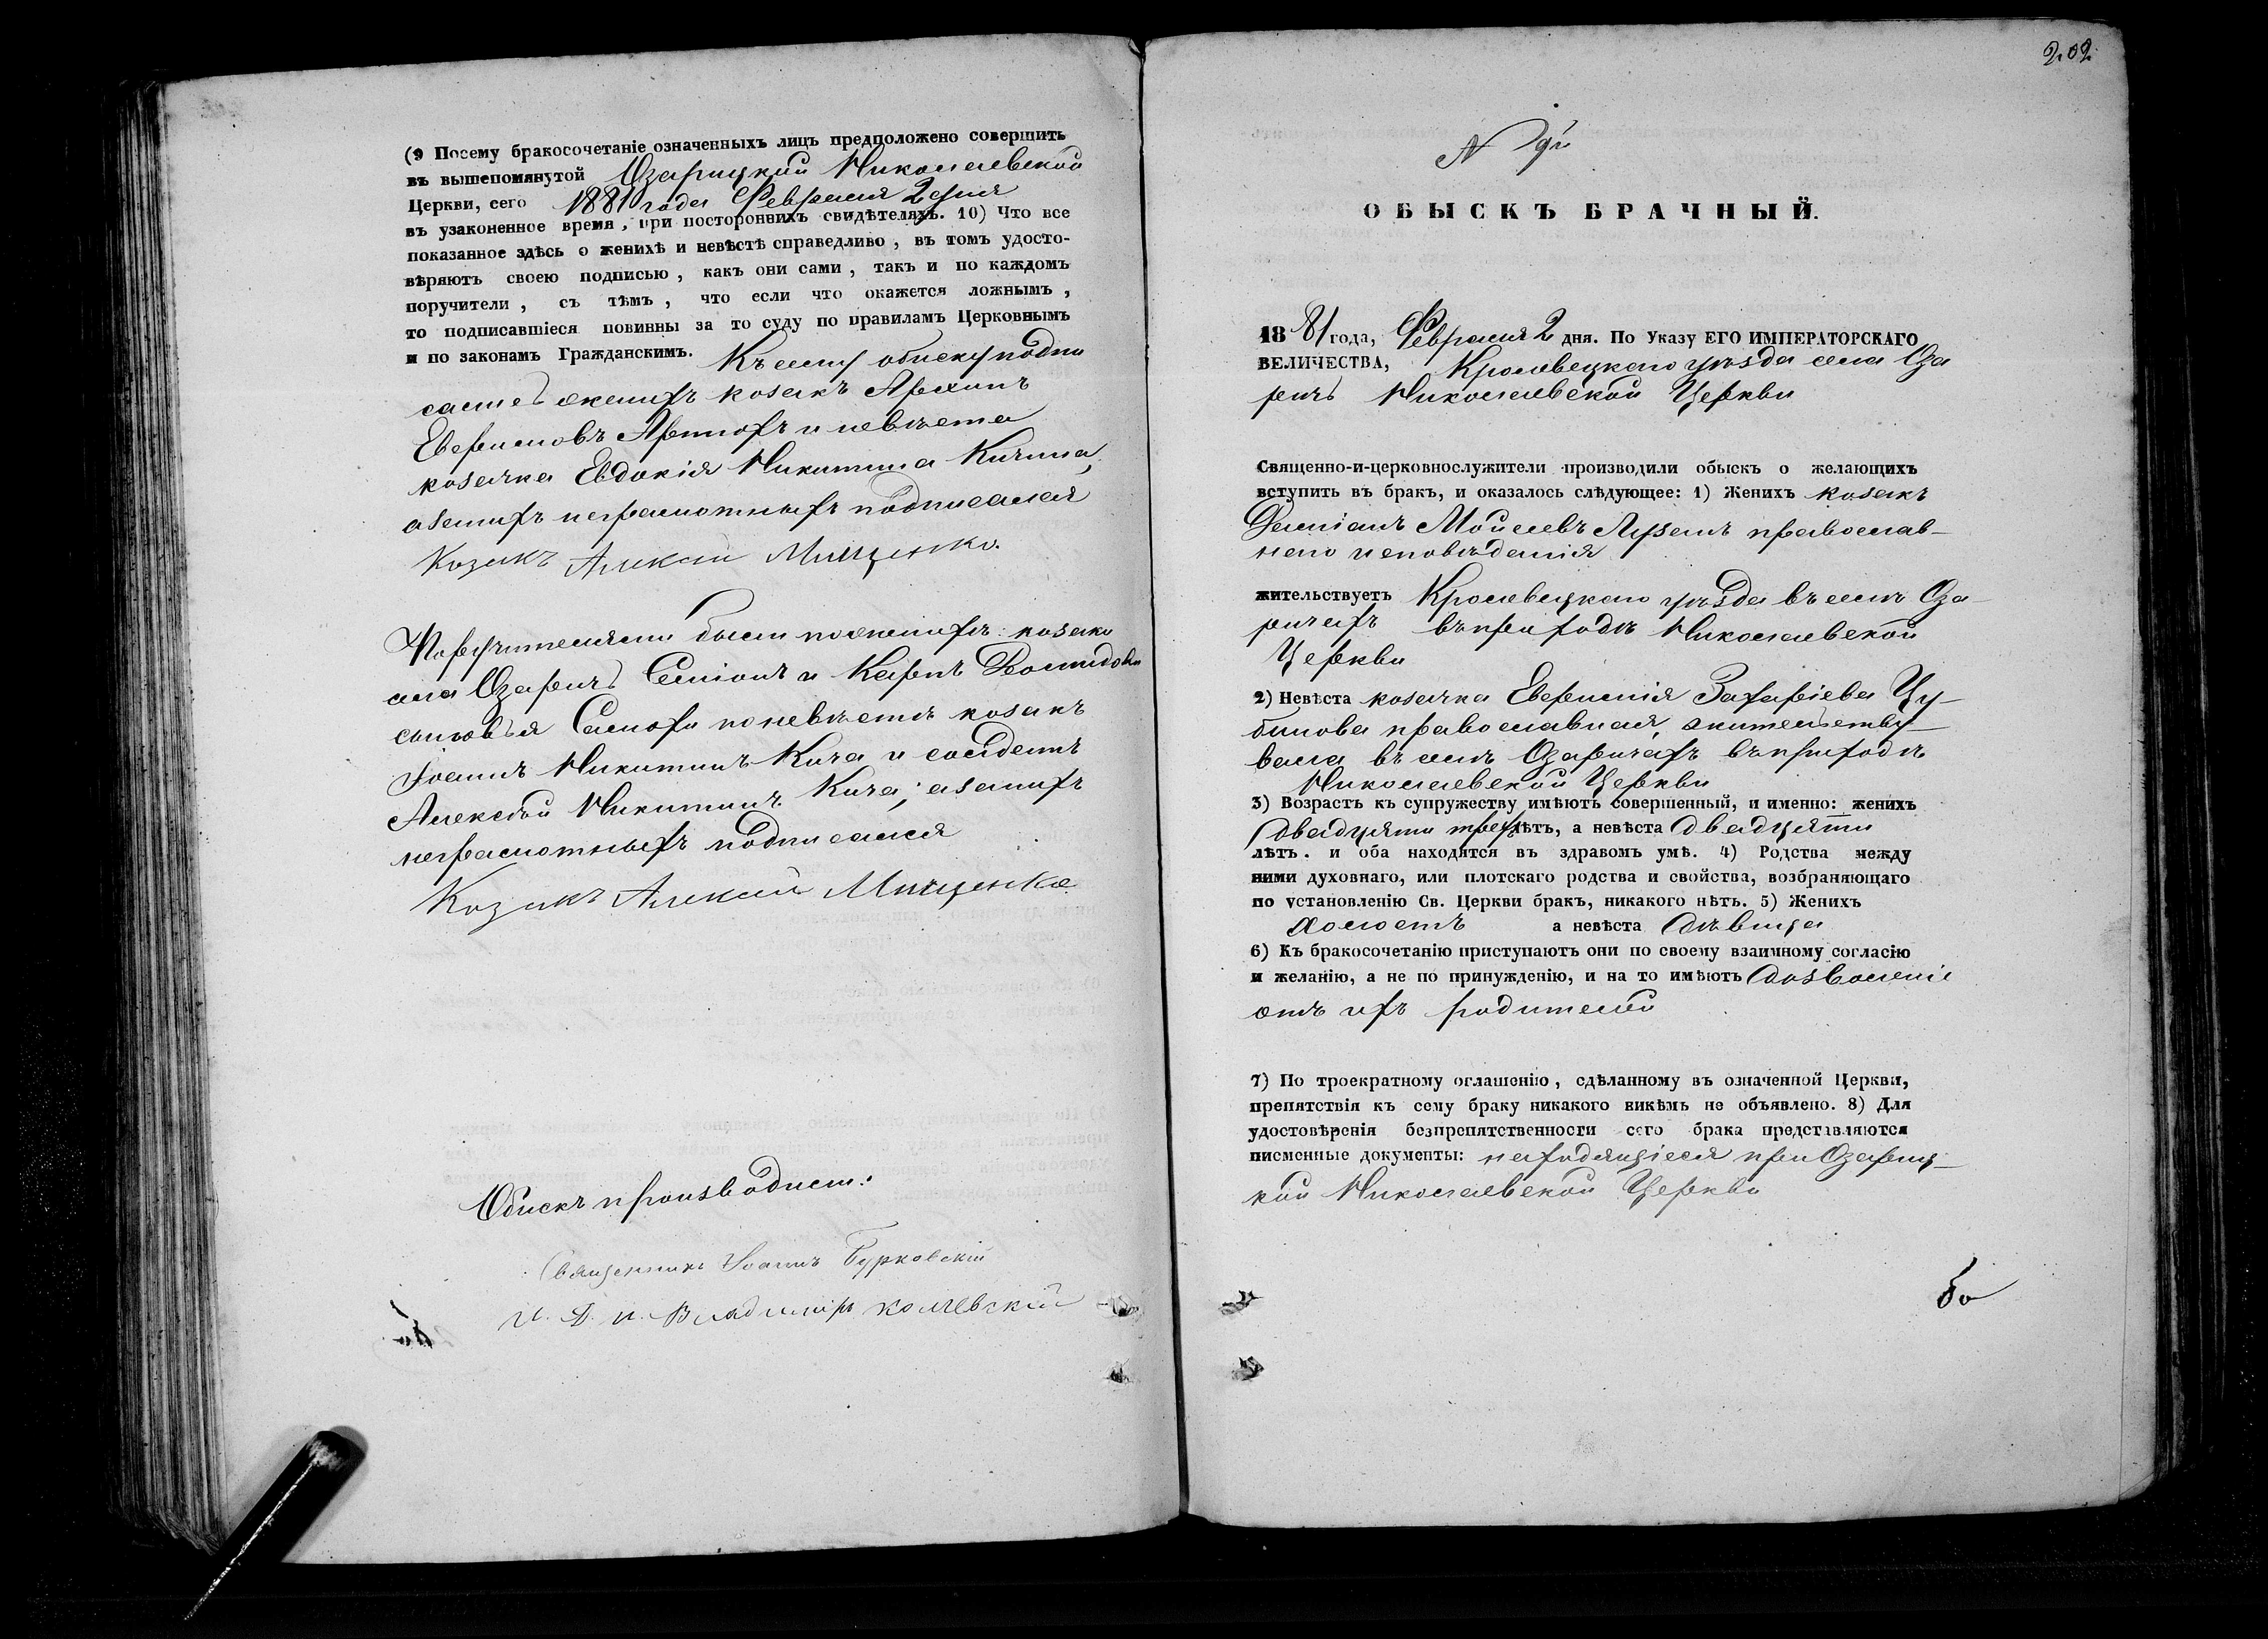 (9 Посему бракосочетаніе означенныхъ лицъ предположено совершить
въ вышепомянутой Озарицкой Николаевской
Церкви, сего 1881 года Февраля 2 дня
въ узаконенное время, при постороннихъ свидѣтеляхъ. 10) Что все
показанное здѣсь о женихѣ и невѣстѣ справедливо, въ томъ удосто-
вѣряютъ своею подписью, какъ они сами, такъ и по каждомъ
поручители, съ тѣмъ, что если что окажется ложнымъ,
то подписавшіеся повинны за то суду по правиламъ Церковнымъ
и по законамъ Гражданскимъ. Къ сему обиску подпи
сались женихъ козакъ Архипъ
и невѣста
козачка Евдокія Никитина Кичина,
а за нихъ неграмотныхъ подписался
Козакъ Алексѣй Мищенко.
Поручителями были по женихѣ: козаки
села Озаричъ Симіонъ и Карпъ Діомидовы
сыновья по невѣстѣ козакъ
Іоаннъ Никитинъ Кича и
Алексѣй Никитинъ Кича; а за нихъ
неграмотныхъ подписался
Козакъ Алексѣй Мищенко
Обискъ производили:
Священникъ Іоаннъ Бурковскій
и. д. п. Владиміръ
202
N 9й
ОБЫСКЪ БРАЧНЫЙ.
1881 года, Февраля 2 дня. По Указу ЕГО ИМПЕРАТОРСКАГО
ВЕЛИЧЕСТВА, Кролевецкого уѣзда села Оза
ричъ Николаевской Церкви
Священно-и-церковнослужители производили обыскъ о желающихъ
вступить въ бракъ, и оказалось слѣдующее: 1) Женихъ козакъ
Даміанъ Моисеевъ Лузанъ православ-
наго исповѣданія
жительствуетъ Кролевецкаго уѣзда въ селѣ Оза
ричахъ въ приходѣ Николаевской
Церкви
2) Невѣста козачка Захаріева Цу-
бинова православная, жительству-
вала въ селѣ Озаричахъ въ приходѣ
Николаевской Церкви
3) Возрастъ къ супружеству имѣютъ совершенный, и именно: женихъ
двадцяти трехъ лѣтъ, а невѣста двадцяти
лѣтъ. и оба находятся въ здравомъ умѣ. 4) Родства между
ними духовнаго, или плотскаго родства и свойства, возбраняющаго
по установленію Св. Церкви бракъ, никакого нѣтъ. 5) Женихъ
холостъ а невѣста дѣвица
6) Къ бракосочетанію приступаютъ они по своему взаимному согласію
и желанію, а не по принужденію, и на то имѣютъ дозволеніе
отъ ихъ родителей
7) По троекратному оглашенію, сдѣланному въ означенной Церкви,
препятствія къ сему браку никакого никѣмъ не объявлено. 8) Для
удостовѣренія безпрепятственности сего брака представляются
писменные документы: находящіеся при Озариц-
кой Николаевской Церкви